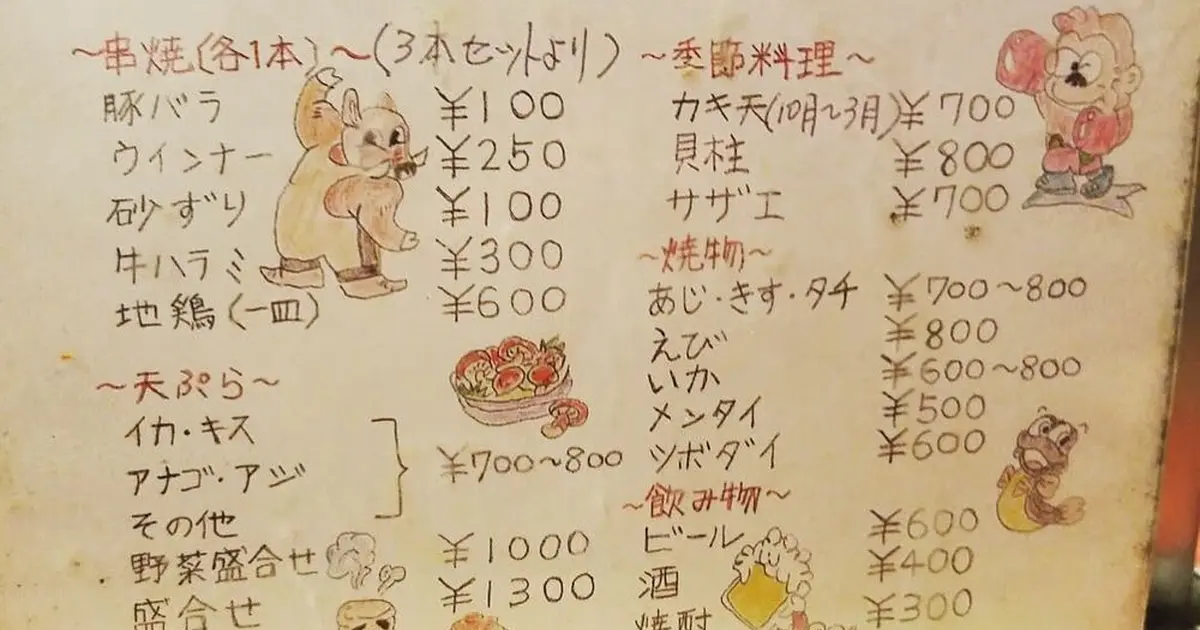 ～串焼(各1本)～(3本セットより)
豚バラ ¥100
ウインナー ¥250
砂ずり ¥100
牛ハラミ ¥300
地鶏(一皿) ¥600
～天ぷら～
イカ・キス
アナゴ・アジ ¥700～800
その他
野菜盛合せ ¥1000
盛合せ ¥1300
～季節料理～
カキ天(10月～3月) ¥700
貝柱 ¥800
サザエ ¥700
～焼物～
あじ・きす・タチ ¥700～800
えび ¥800
いか ¥600～800
メンタイ ¥500
ツボダイ ¥600
～飲み物～
ビール ¥600
酒 ¥400
焼酎 ¥300